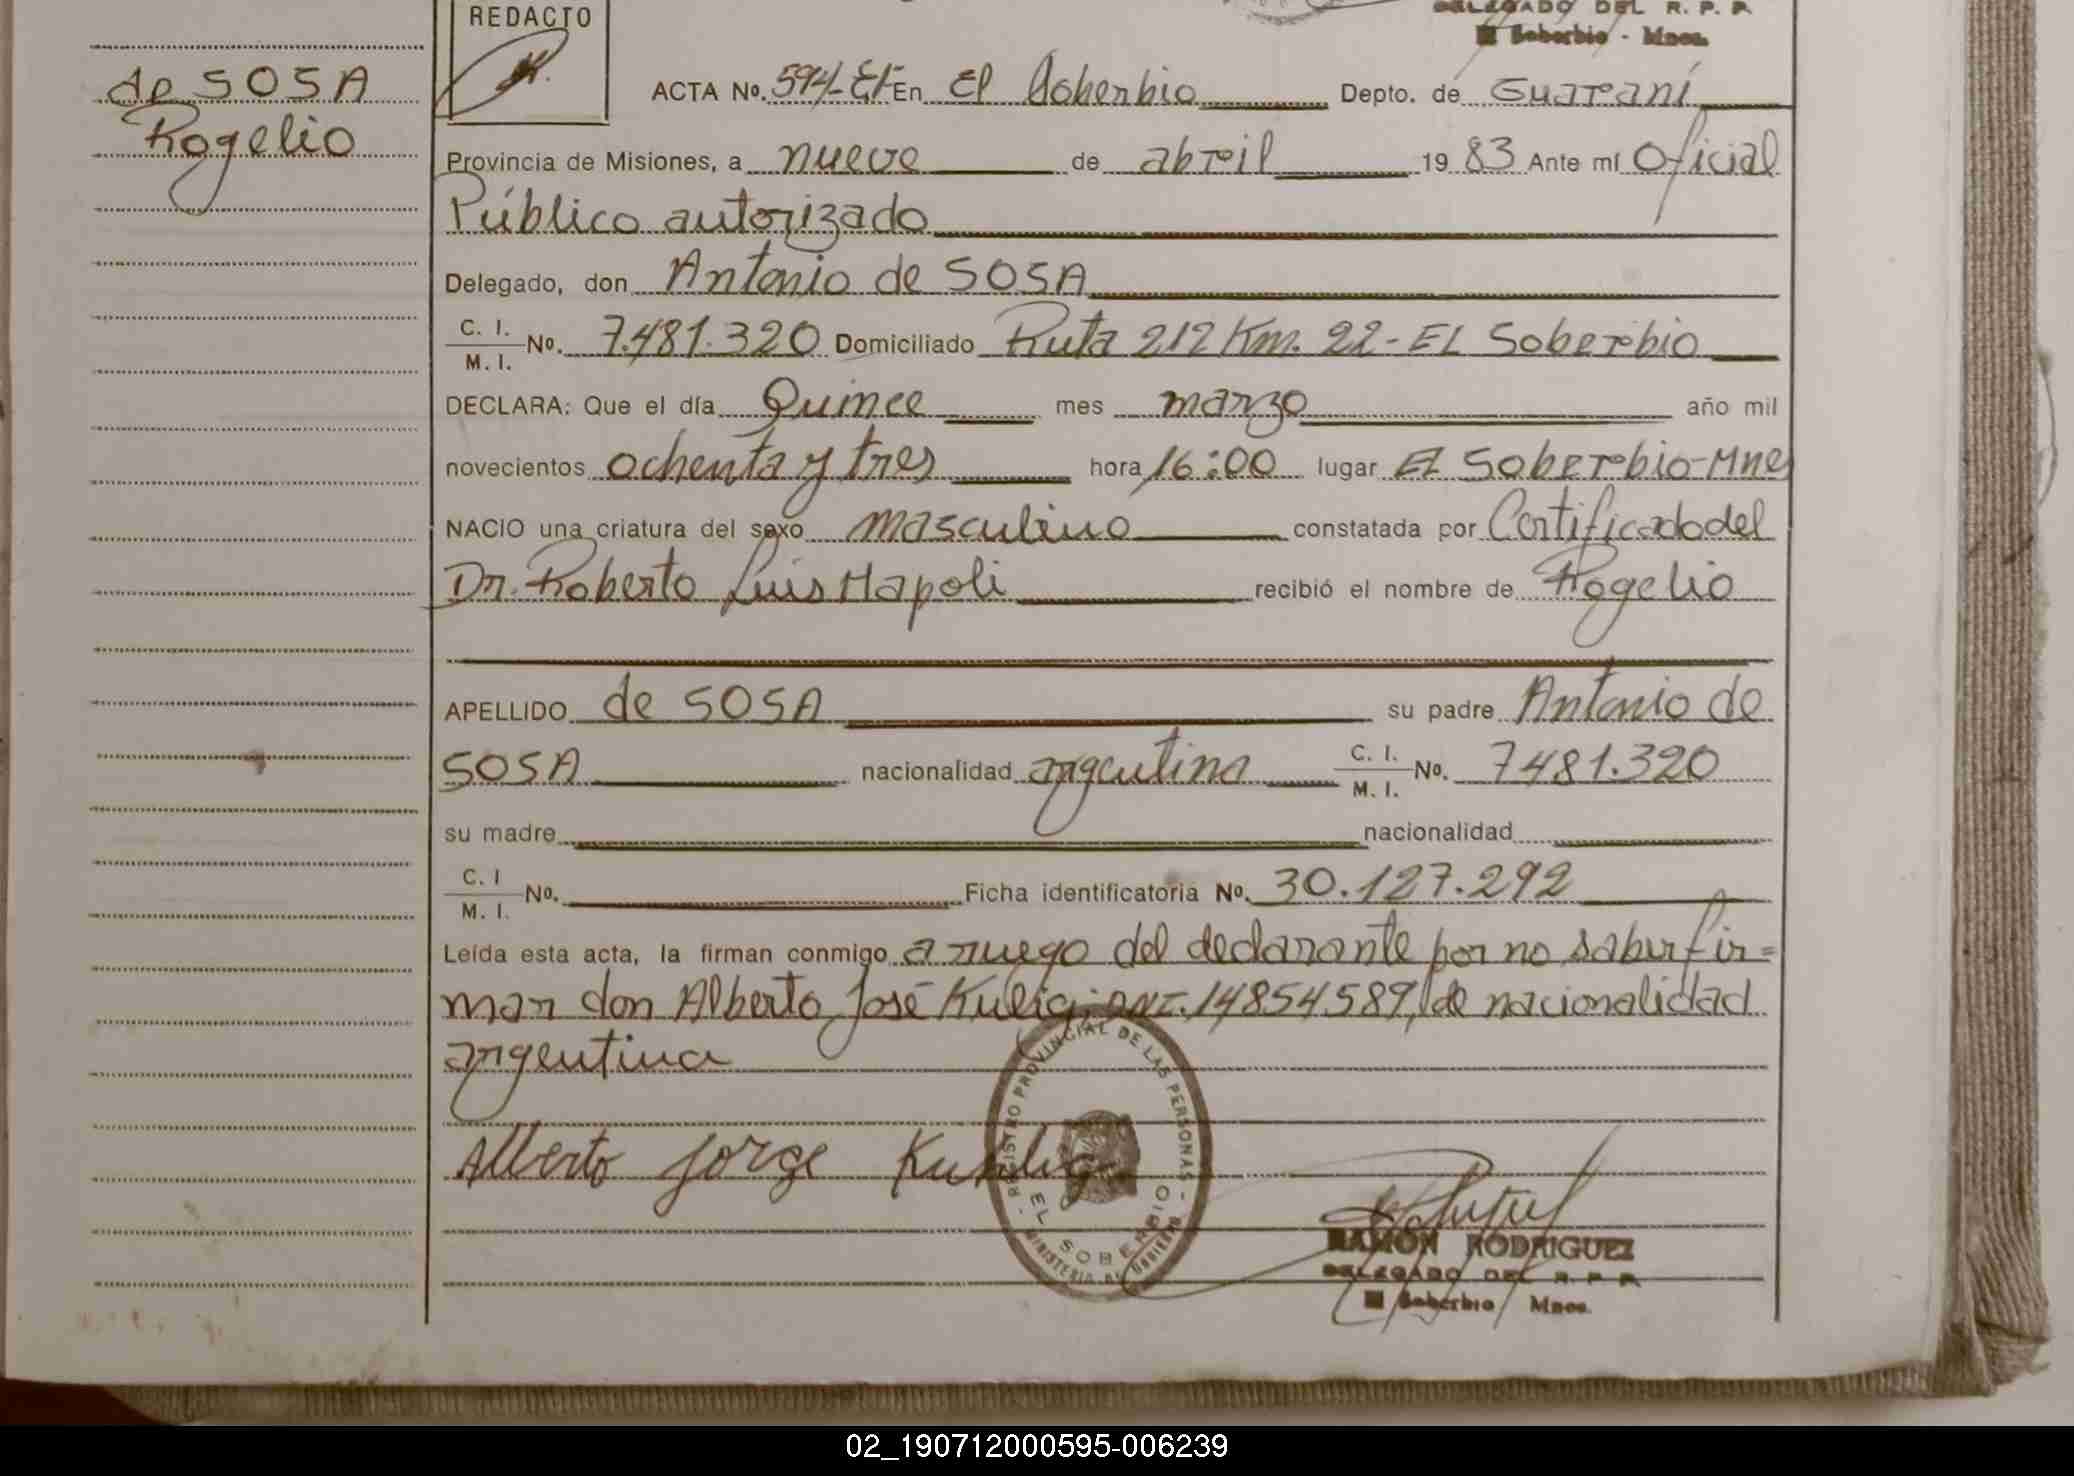 REDACTO
DELEGADO DEL R. P. P.
El Soberbio - Mnes.
de SOSA
Rogelio
ACTA No. 594- En El Soberbio Depto. de Guaraní
Provincia de Misiones, a nueve de abril 1983 Ante mí Oficial
Público autorizado
Delegado, don Antonio de SOSA
C. I. M. I. No. 7.481.320 Domiciliado Ruta 212 Km. 22- EL Soberbio
DECLARA: Que el día Quince mes marzo año mil
novecientos ochenta y tres hora 16:00 lugar EL Soberbio-Mnes
NACIO una criatura del sexo masculino constatada por Certificado del
Dr. Roberto Luis Napoli recibió el nombre de Rogelio
APELLIDO de SOSA su padre Antonio de
SOSA nacionalidad argentina C. I. M. I. No. 7481.320
su madre nacionalidad
C. I M. I. No. Ficha identificatoria No. 30.127.292
Leída esta acta, la firman conmigo a ruego del declarante por no saber fir=
mar don Alberto José DNI. 14854589, de nacionalidad
argentina
Alberto Jorge
REGISTRO PROVINCIAL DE LAS PERSONAS
EL SOBERBIO
MINISTERIO DE GOBIERNO
RAMON RODRIGUEZ
DELEGADO DEL R. P. P.
El Soberbio Mnes.
02_190712000595-006239